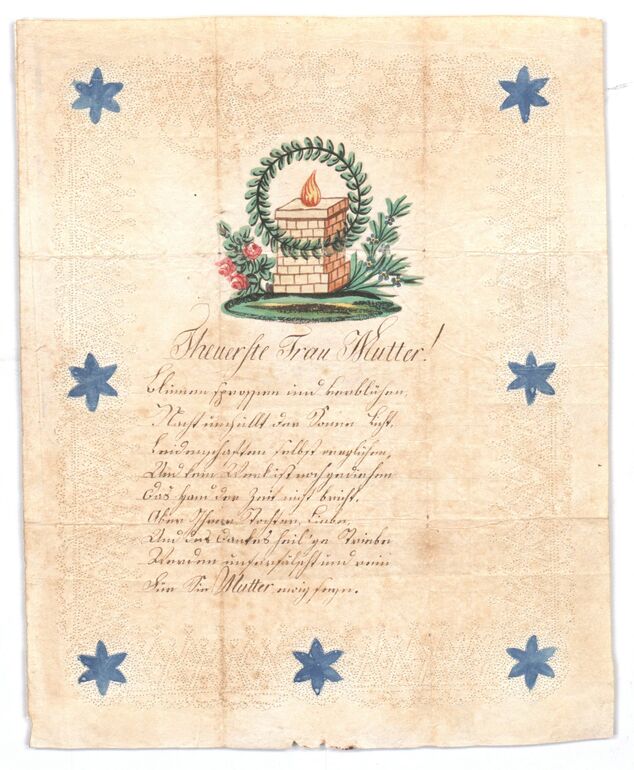 Theuerste Frau Mutter!
Blumen sprossen und verblühen,
Nacht umhüllt der Sonne Licht,
Leidenschaften selbst verglühen,
Und kein Werk ist noch gediehen
Das Hand der Zeit nicht bricht.
Aber Ihrer Tochter Liebe,
Und des Dankes heil'ge Triebe
Werden unverfälscht und rein
Für Sie Mutter ewig seyn.